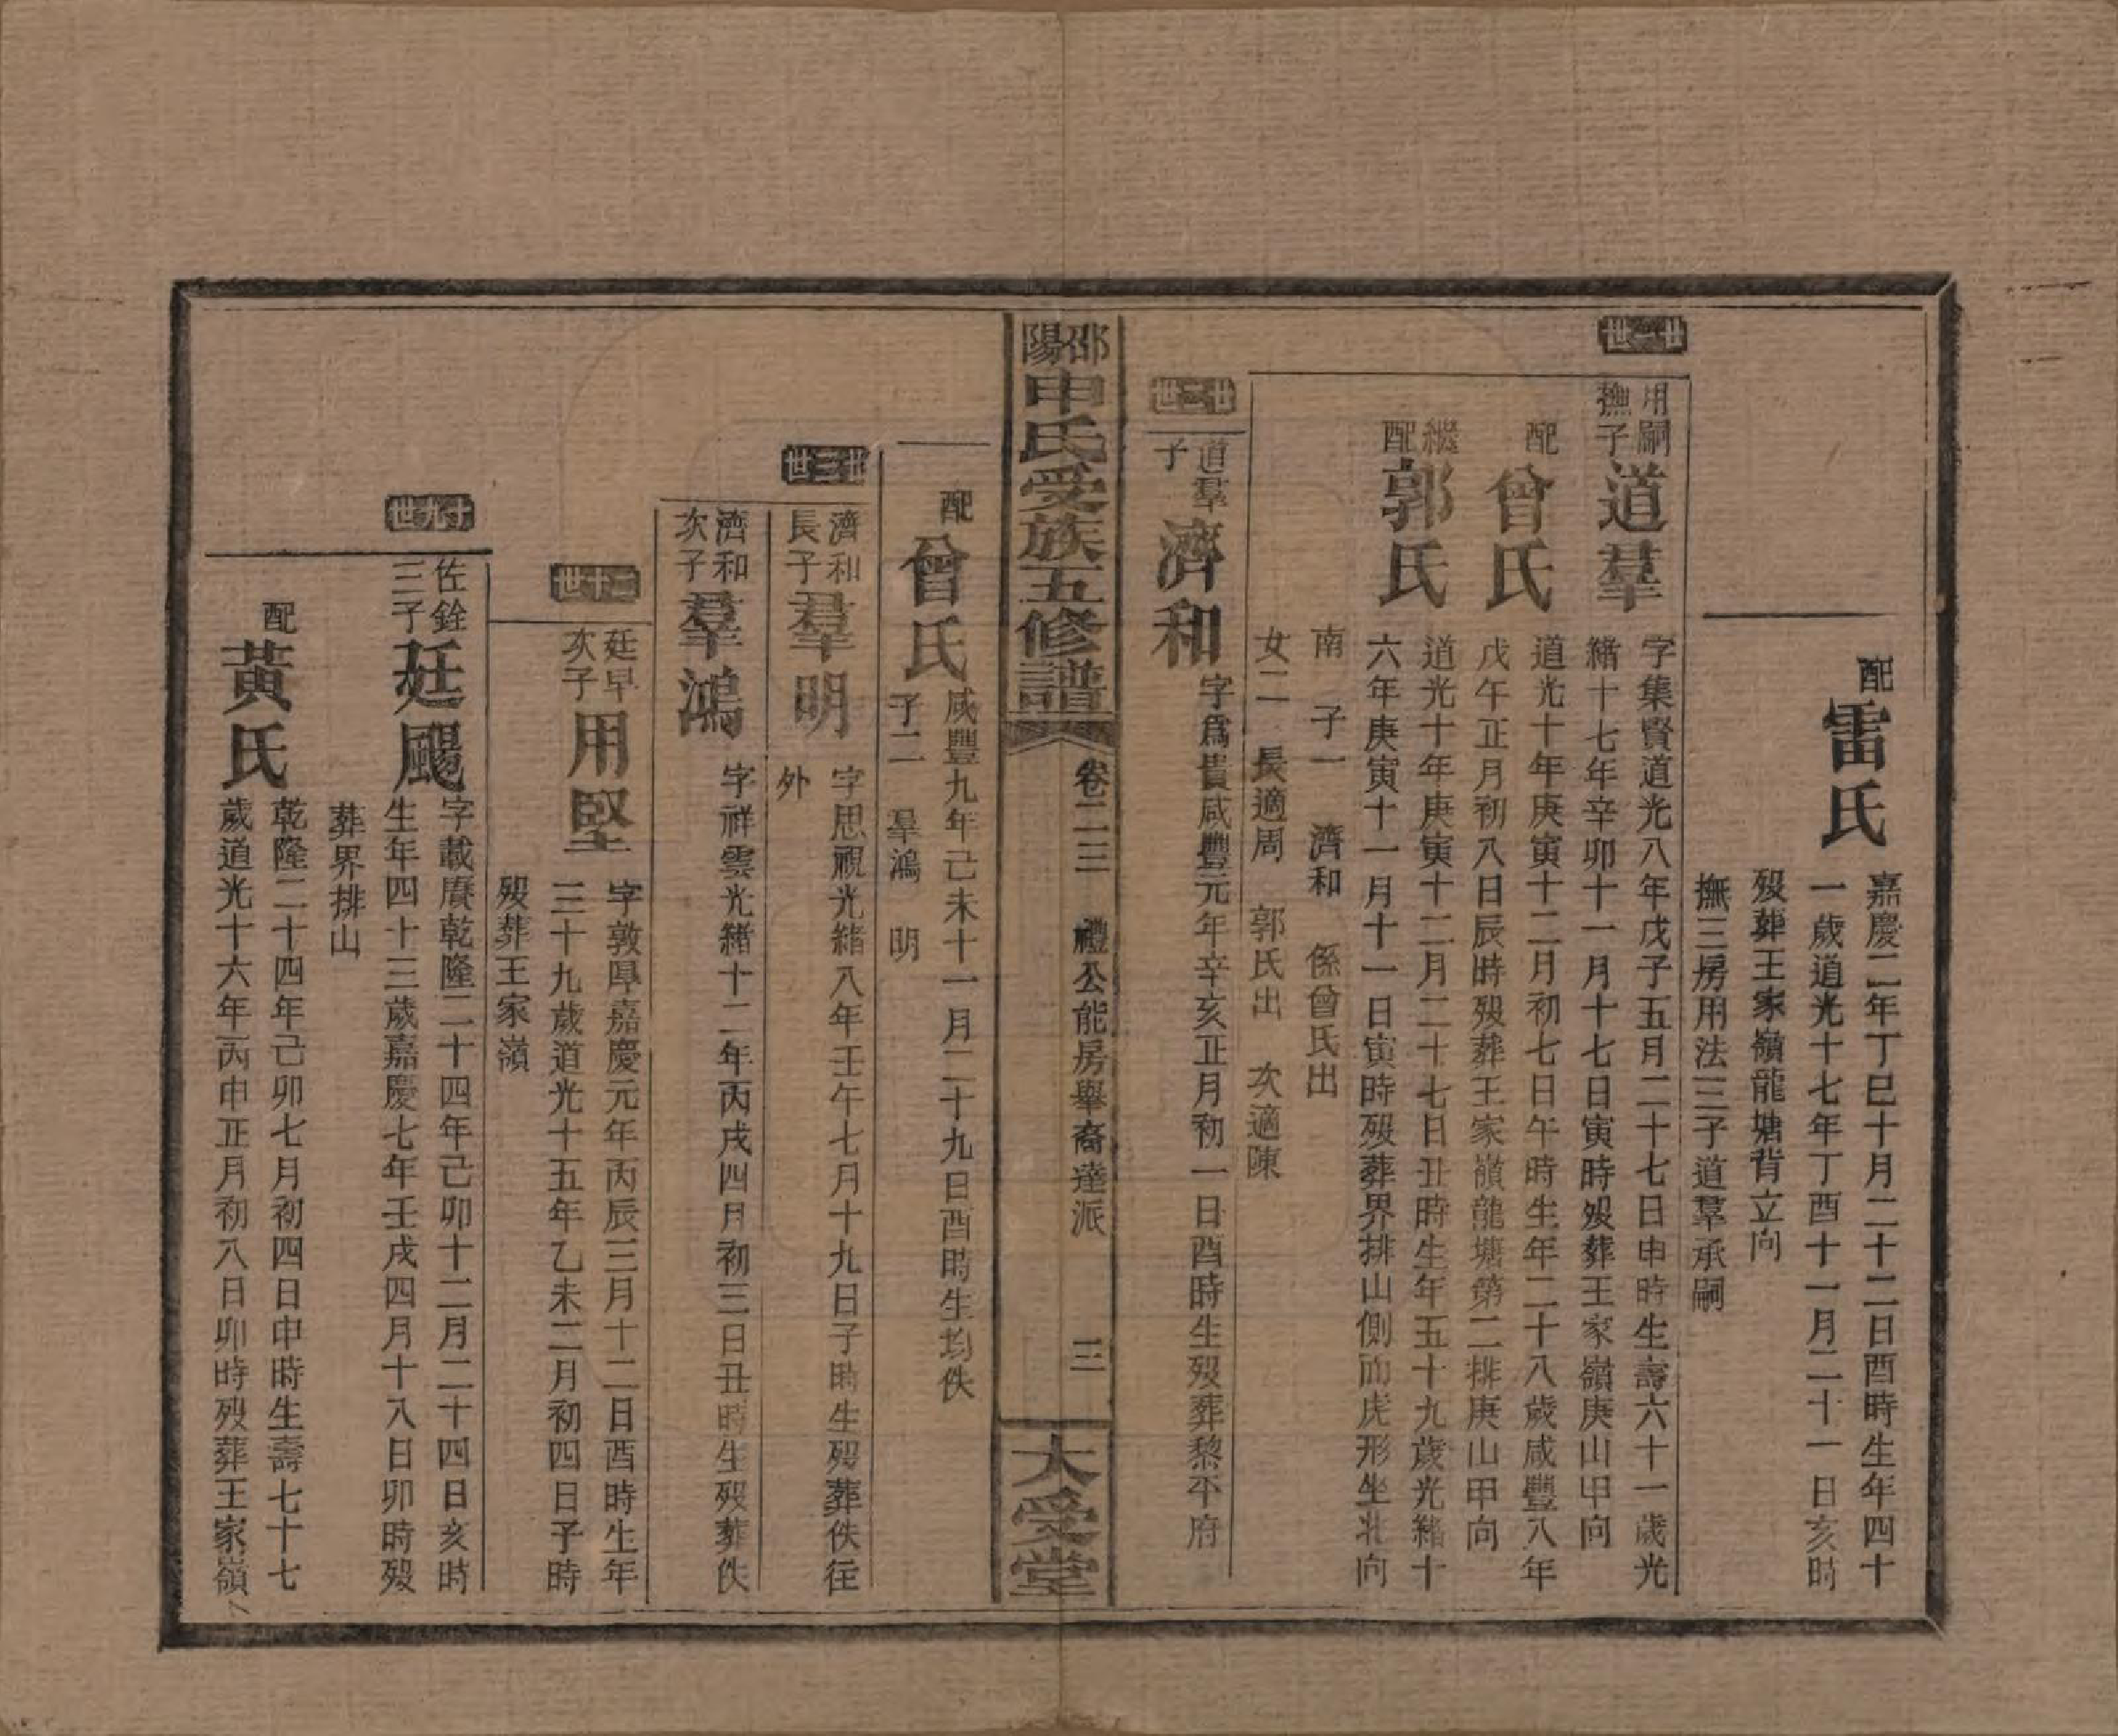 配
雷氏
嘉慶二年丁巳十月二十二日酉時生年四十
一歲道光十七年丁酉十一月二十一日亥時
歿葬王家嶺龍塘背立向
撫三房用法三子道羣承嗣
廿一世
用嗣
撫子
道羣
字集賢道光八年戊子五月二十七日申時生壽六十一歲光
緒十七年辛卯十一月十七日寅時歿葬王家嶺庚山甲向
配
曾氏
道光十年庚寅十二月初七日午時生年二十八歲咸豐八年
戊午正月初八日辰時歿葬王家嶺龍塘第二排庚山甲向
繼
配
郭氏
道光十年庚寅十二月二十七日丑時生年五十九歲光緒十
六年庚寅十一月十一日寅時歿葬界排山側面虎形坐北向
南 子一 濟和 係曾氏出
女二 長適周 郭氏出 次適陳
廿二世
道羣
子
濟和
字爲貴咸豐元年辛亥正月初一日酉時生歿葬黎平府
邵陽申氏受族五修譜
卷二三 禮公能房舉裔達派
三
大受堂
配
曾氏
咸豐九年己未十一月二十九日酉時生均佚
子二 羣鴻 明
廿三世
濟和
長子
羣明
字思視光緒八年壬午七月十九日子時生歿葬佚往
外
濟和
次子
羣鴻
字祥雲光緒十二年丙戌四月初三日丑時生歿葬佚
二十世
廷早
次子
用堅
字敦厚嘉慶元年丙辰三月十二日酉時生年
三十九歲道光十五年乙未二月初四日子時
歿葬王家嶺
十九世
佐銓
三子
廷颺
字載賡乾隆二十四年己卯十二月二十四日亥時
生年四十三歲嘉慶七年壬戌四月十八日卯時歿
葬界排山
配
黃氏
乾隆二十四年己卯七月初四日申時生壽七十七
歲道光十六年丙申正月初八日卯時歿葬王家嶺